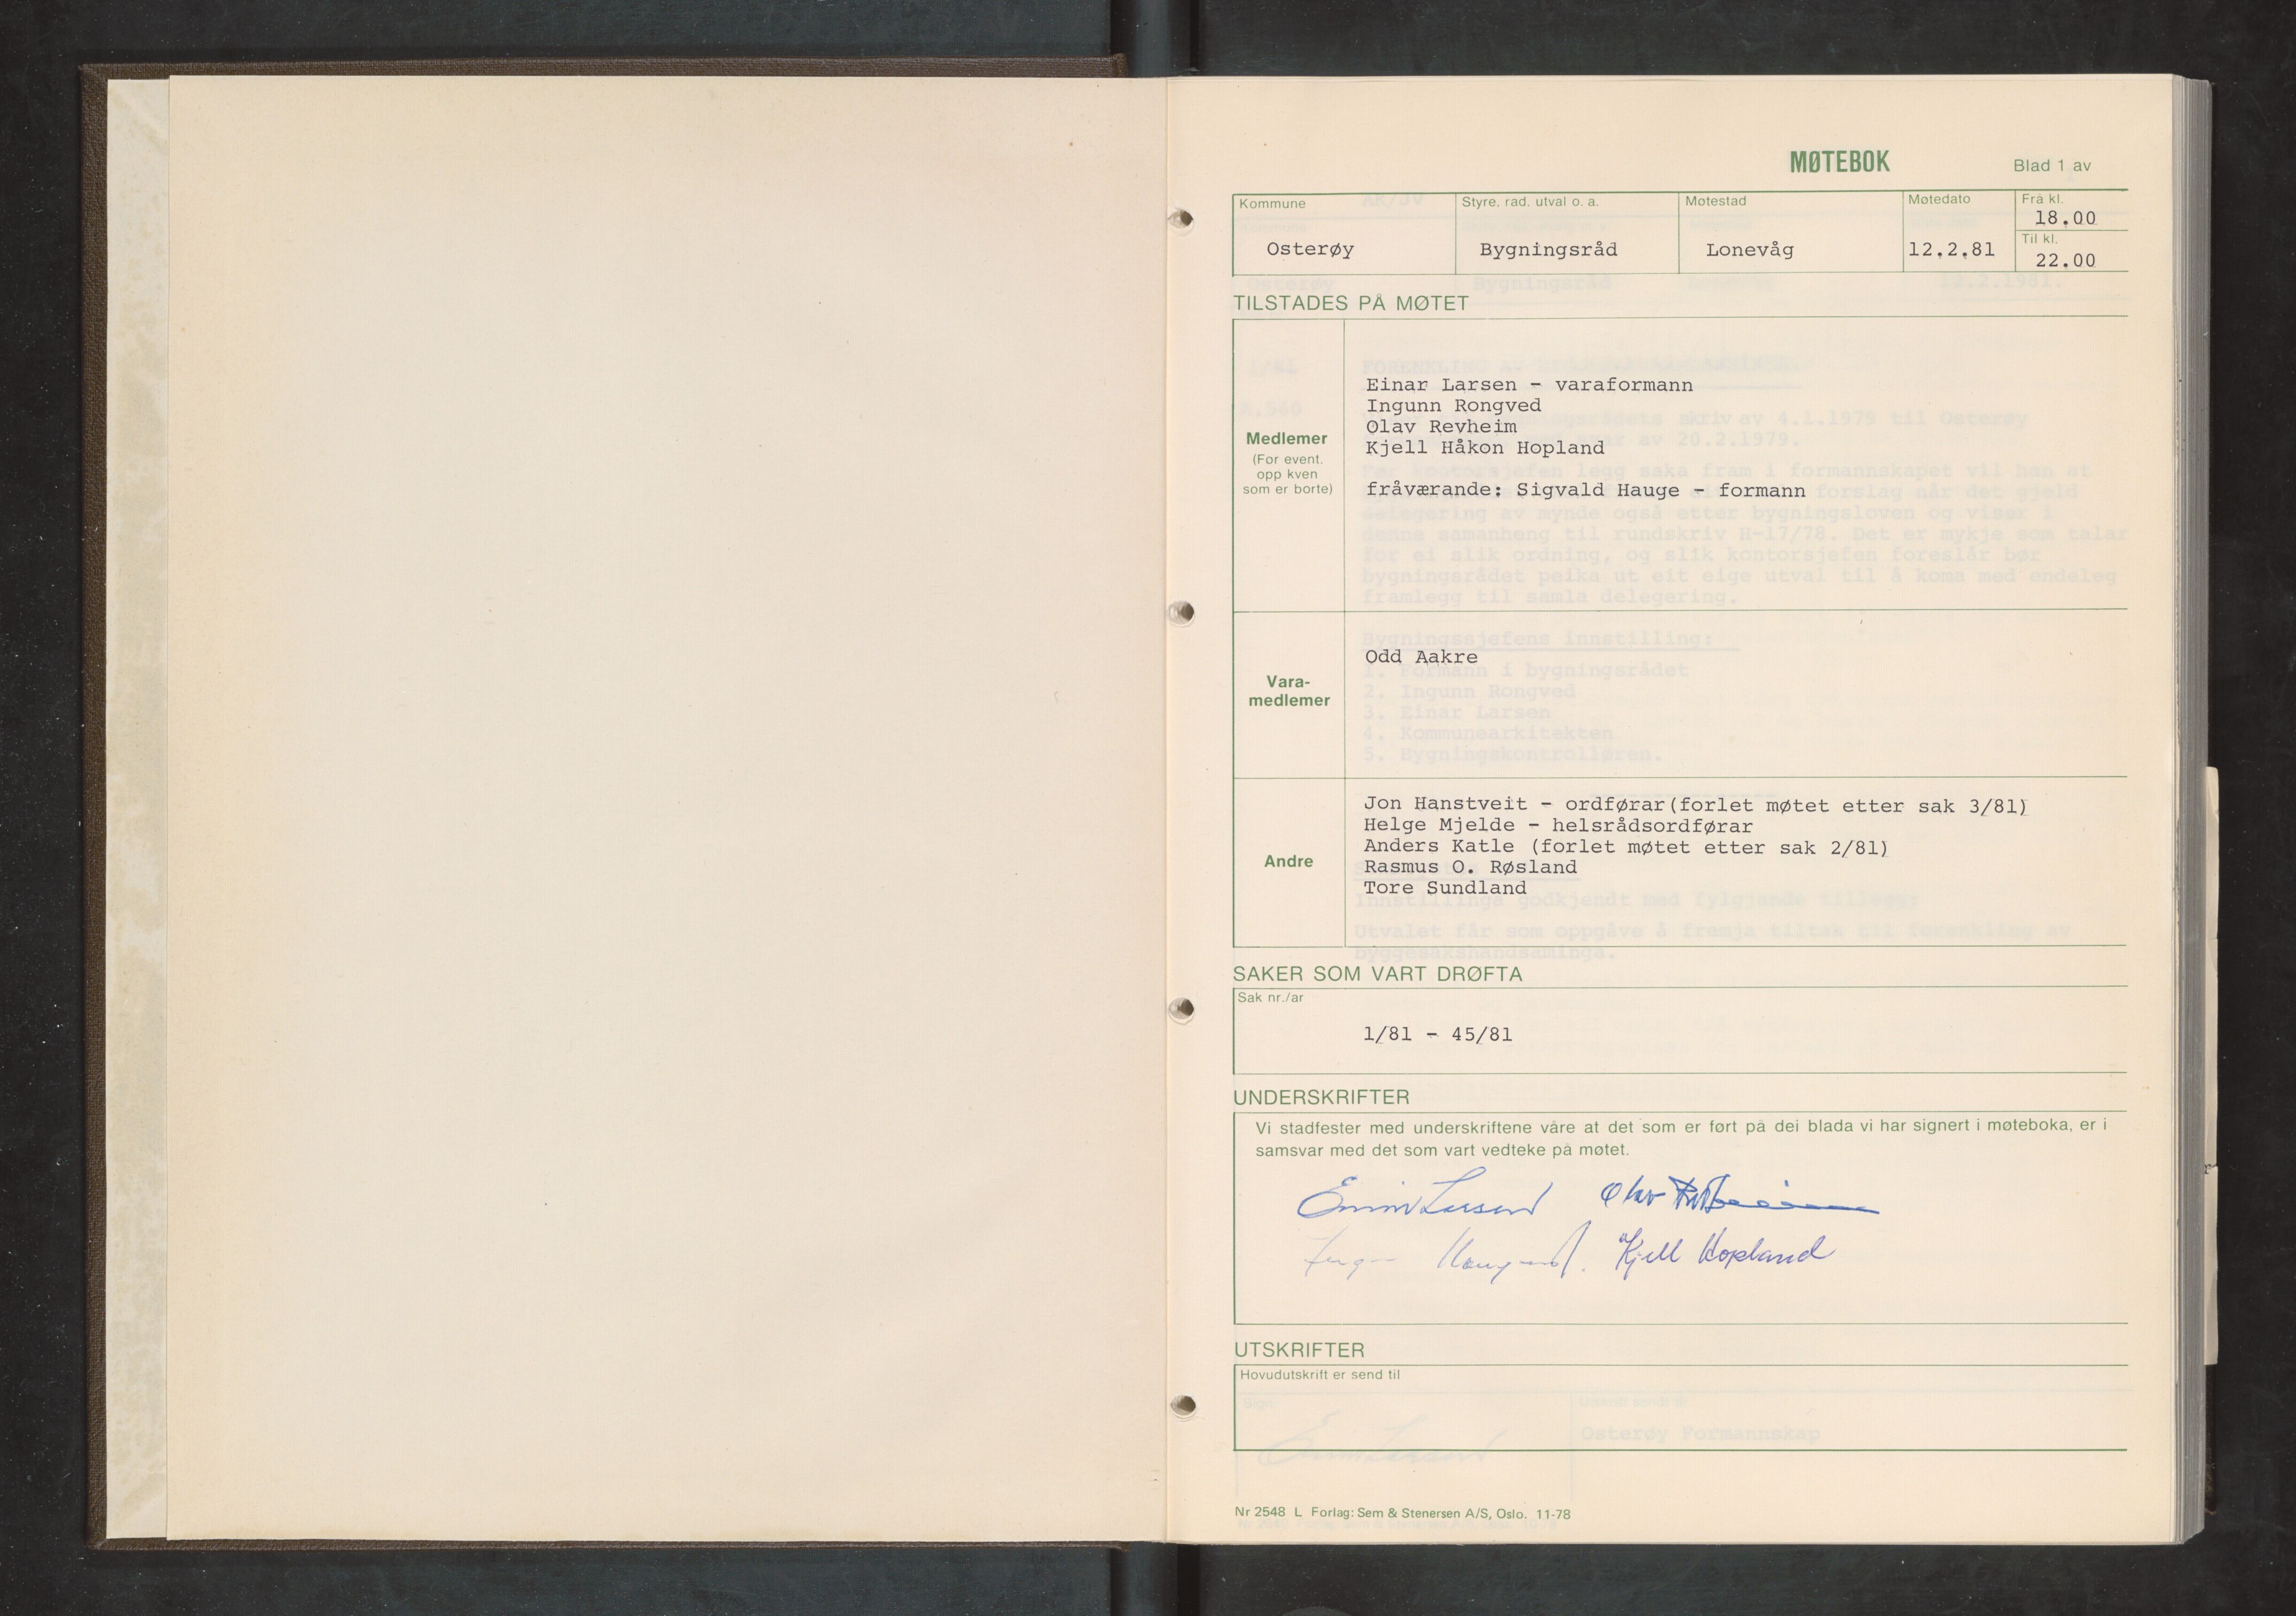 MØTEBOK
Blad 1 av
Kommune
Styre, rad, utval o. a.
Møtestad
Møtedato
Frå kl.
18.00
Osterøy
Bygningsråd
Lonevåg
12.2.81
Til kl.
22.00
TILSTADES PÅ MØTET
Medlemer
(For event.
opp kven
som er borte)
Einar Larsen - varaformann
Ingunn Rongved
Olav Revheim
Kjell Håkon Hopland
fråværande: Sigvald Hauge - formann
Vara-
medlemer
Odd Aakre
Andre
Jon Hanstveit - ordførar(forlet møtet etter sak 3/81)
Helge Mjelde - helsrådsordførar
Anders Katle (forlet møtet etter sak 2/81)
Rasmus O. Røsland
Tore Sundland
SAKER SOM VART DRØFTA
Sak nr./ar
1/81 - 45/81
UNDERSKRIFTER
Vi stadfester med underskriftene våre at det som er ført på dei blada vi har signert i møteboka, er i
samsvar med det som vart vedteke på møtet.
Einar Larsen Olav Revheim
Kjell Hopland
UTSKRIFTER
Hovudutskrift er send til
Nr 2548 L Forlag: Sem & Stenersen A/S, Oslo. 11-78